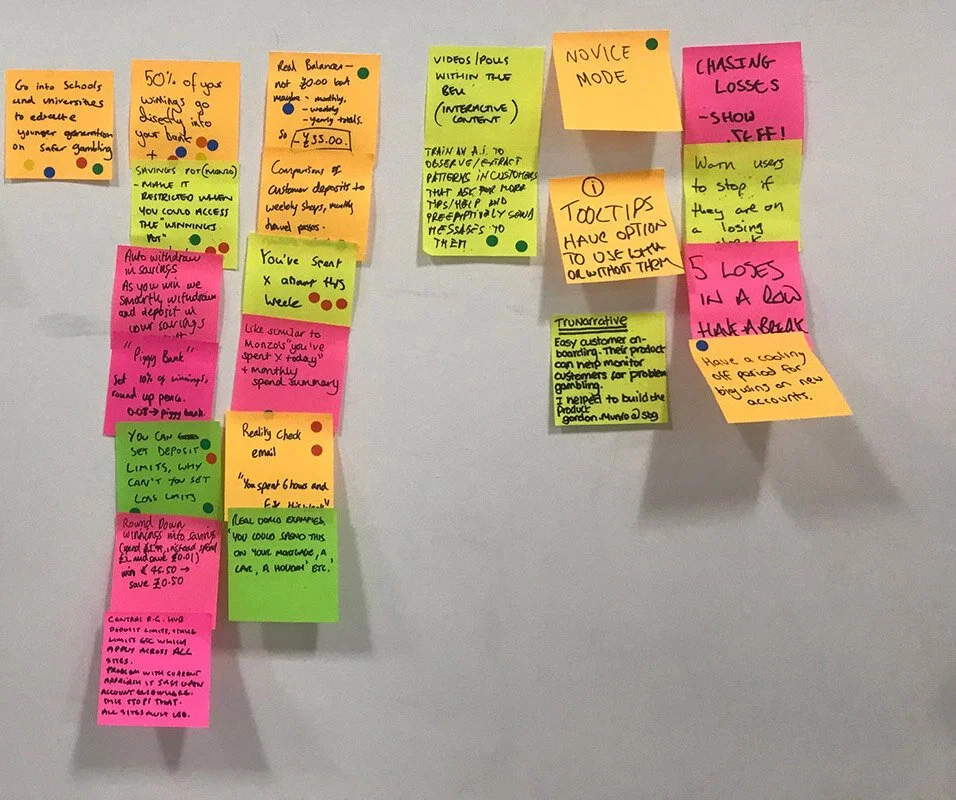 Go into Schools
and universities
to educate
younger generation
on Safer gambling
50% of your
winnings go
directly into
your bank
+
SAVINGS POT (MONZO)
- MAKE IT
RESTRICTED WHEN
YOU COULD ACCESS
THE "WINNINGS
POT"
Auto withdraw
in savings
As you win we
smartly withdraw
and deposit in
your savings
"Piggy Bank"
Set 10% of winnings,
round up pence.
→ piggy bank.
YOU CAN
SET DEPOSIT
LIMITS, WHY
CAN'T YOU SET
LOSS LIMITS
Round Down
winnings into savings
(spend £1.99, instead spend
£2 and save £0.01)
win £45.50 →
save £0.50
CENTRAL R.G. HUB
DEPOSIT LIMITS, STAKE
LIMITS ETC WHICH
APPLY ACROSS ALL
SITES.
PROBLEM WITH CURRENT
APPROACH IS JUST OPEN
ACCOUNT ELSEWHERE.
THIS STOPS THAT.
ALL SITES MUST USE.
Real Balances -
not £0.00 but
maybe - monthly,
- weekly
- yearly totals.
So -£35.00.
Comparisons of
customer deposits to
weekly shops, monthly
travel passes.
You've spent
X amount this
week
Like similar to
Monzo's "you've
spent X today"
+ monthly
spend summary
Reality Check
email
"You spent 6 hours and
REAL WORLD EXAMPLES,
'YOU COULD SPEND THIS
ON YOUR MORTGAGE, A
CAR, A HOLIDAY' ETC.
VIDEOS/POLLS
WITHIN THE
BELL
(INTERACTIVE
CONTENT)
TRAIN AN A.I. TO
OBSERVE/EXTRACT
PATTERNS IN CUSTOMERS
THAT ASK FOR MORE
TIPS/HELP AND
PREEMPTIVELY SEND
MESSAGES TO
THEM
NOVICE
MODE
i
TOOLTIPS
HAVE OPTION
TO USE WITH
OR WITHOUT THEM
TruNarrative
Easy customer on-
boarding. Their product
can help monitor
customers for problem
gambling.
I helped to build the
product
gordon.munro@sbg
CHASING
LOSSES
- SHOW
STUFF!
Warn users
to stop if
they are on
a losing
5 LOSES
IN A ROW
HAVE A BREAK
Have a cooling
off period for
big wins on new
accounts.